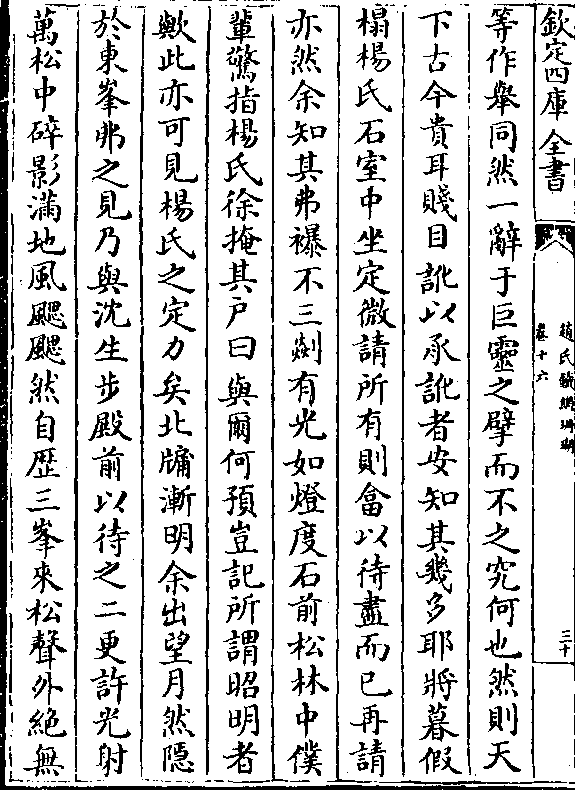 欽定四庫全書
趙氏鐵網珊瑚
卷十六
三十
等作舉同然一辭于巨靈之擘而不之究何也然則天
下古今貴耳賤目訛以承訛者安知其幾多耶將暮假
榻楊氏石室中坐定微請所有則畣以待盡而已再請
亦然余知其弗襮不三㸑有光如燈度石前松林中僕
輩驚指楊氏徐掩其户曰與爾何預豈記所謂昭明者
歟此亦可見楊氏之定力矣北牖漸明余出望月然隱
於東峯弗之見乃與沈生步殿前以待之二更許光射
萬松中碎影滿地風颸颸然自歴三峯來松聲外絶無